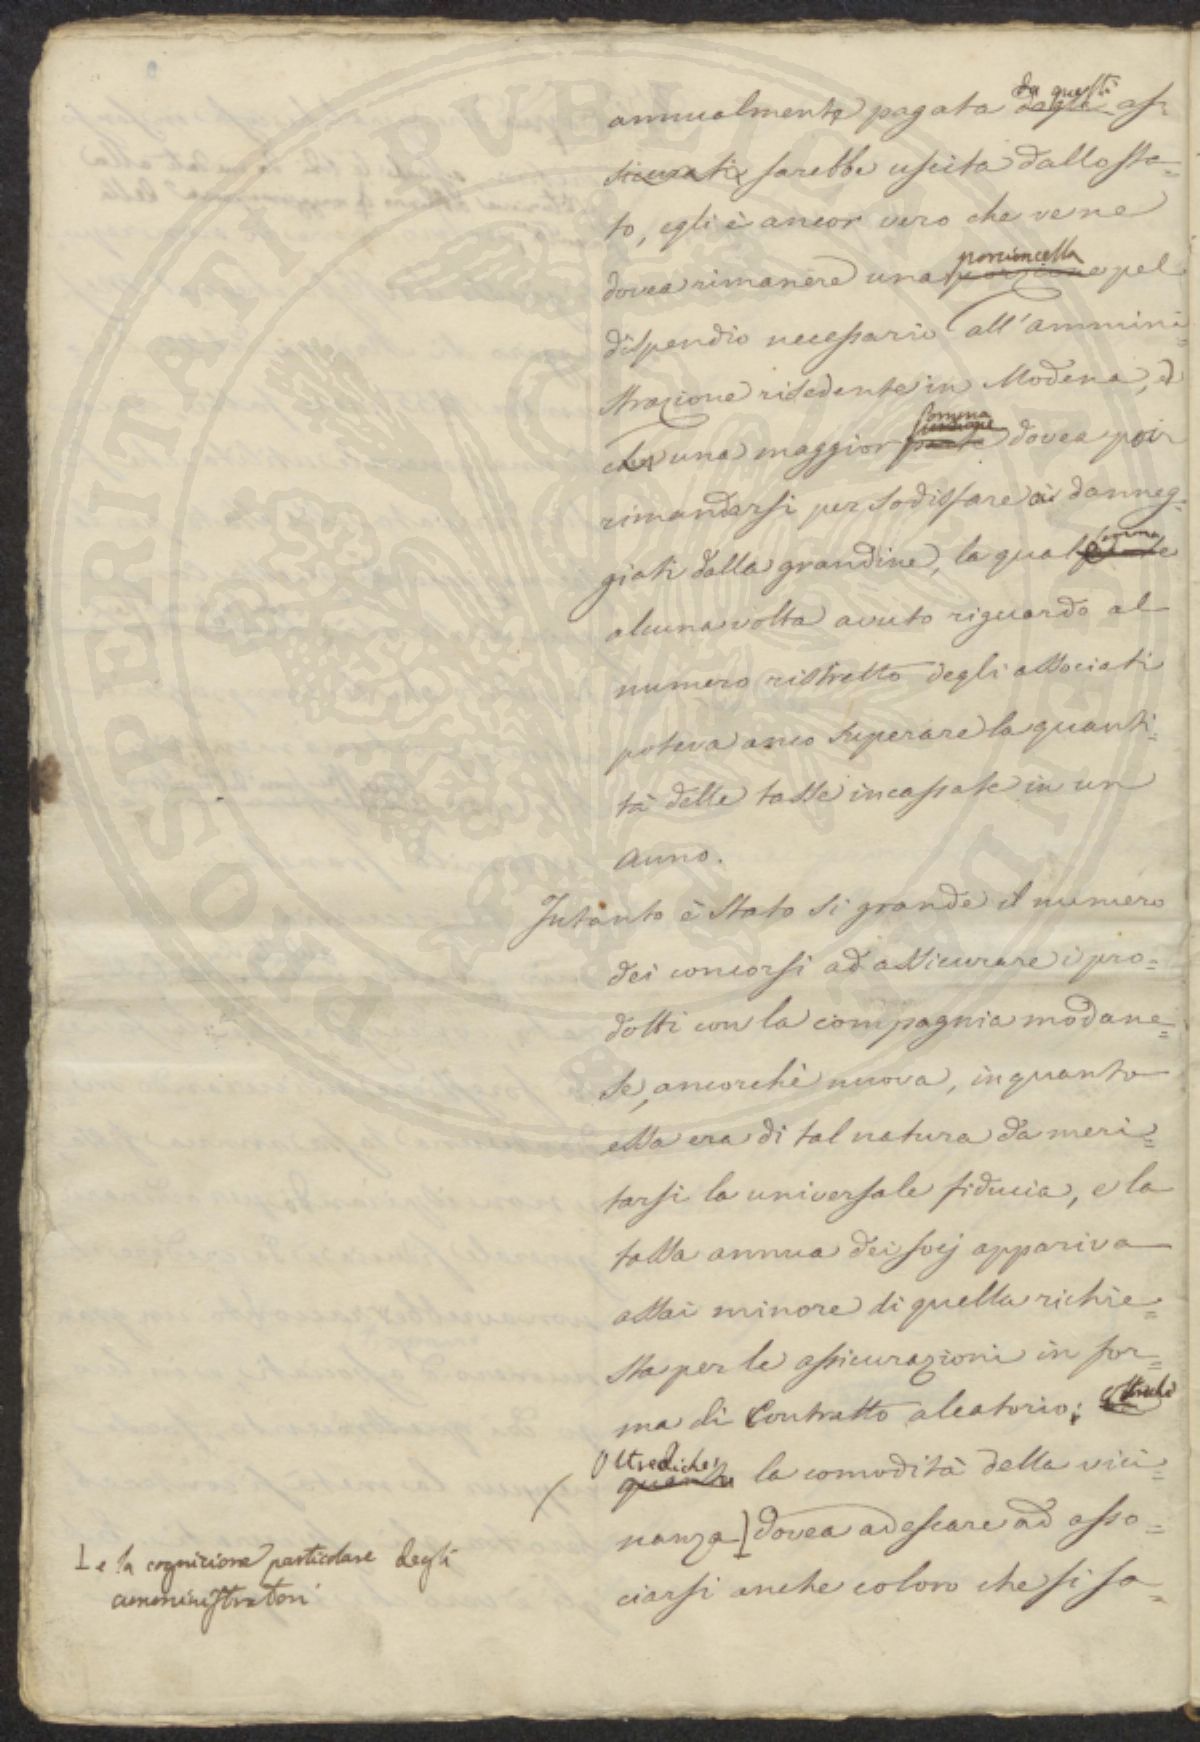 PROSPERITATI PUBLICAE
annualmente pagata dagli da questi as-
sicurati sarebbe uscita dallo sta=
to, egli è ancor vero che vene
dovea rimanere una porzione porzioncella pel
dispendio necessario all'ammini=
strazione risedente in Modena, ed
che una maggior parte somma dovea poi
rimandarsi per sodisfare ai danneg=
giati dalla grandine, la qual parte somma
alcuna volta avuto riguardo al
numero ristretto degli associati
poteva anco superare la quanti=
tà delle tasse incassate in un
anno.
Intanto è stato si grande il numero
dei concorsi ad assicurare i pro=
dotti con la compagnia modane=
se, ancorchè nuova, in quanto
essa era di tal natura da meri=
tarsi la universale fiducia, e la
tassa annua dei socj appariva
assai minore di quella richie=
sta per le assicurazioni in for=
ma di Contratto aleatorio;
Oltrediche la comodità della vici=
nanza] dovea adescare ad asso=
ciarsi anche coloro che si sa=
⊥ e la cognizione particolare degli
amministratori